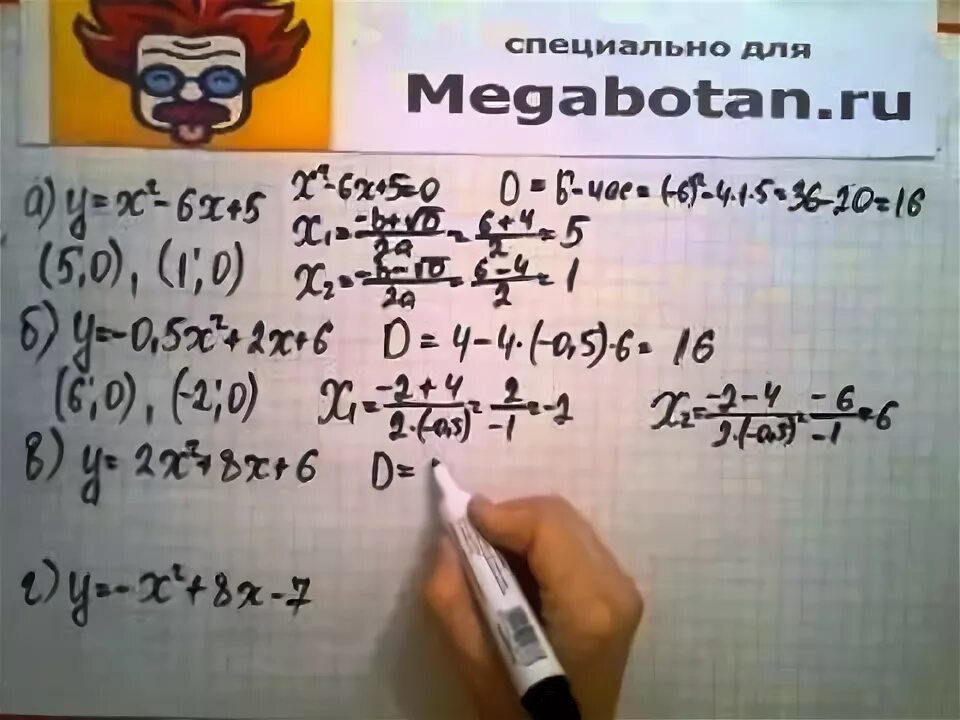 специально для
Megabotan.ru
а) y=x²-6x+5 x²-6x+5=0 D = b²-4ac = (-6)²-4·1·5=36-20=16
x₁=(-b+√D)/2a=(6+4)/2=5
(5;0), (1;0) x₂=(-b-√D)/2a=(6-4)/2=1
б) y=-0,5x²+2x+6 D = 4-4·(-0,5)·6= 16
(6;0), (-2;0) x₁=(-2+4)/(2·(-0,5))=2/-1=-2 x₂=(-2-4)/(2·(-0,5))=-6/-1=6
в) y= 2x²+8x+6 D=
г) y=-x²+8x-7